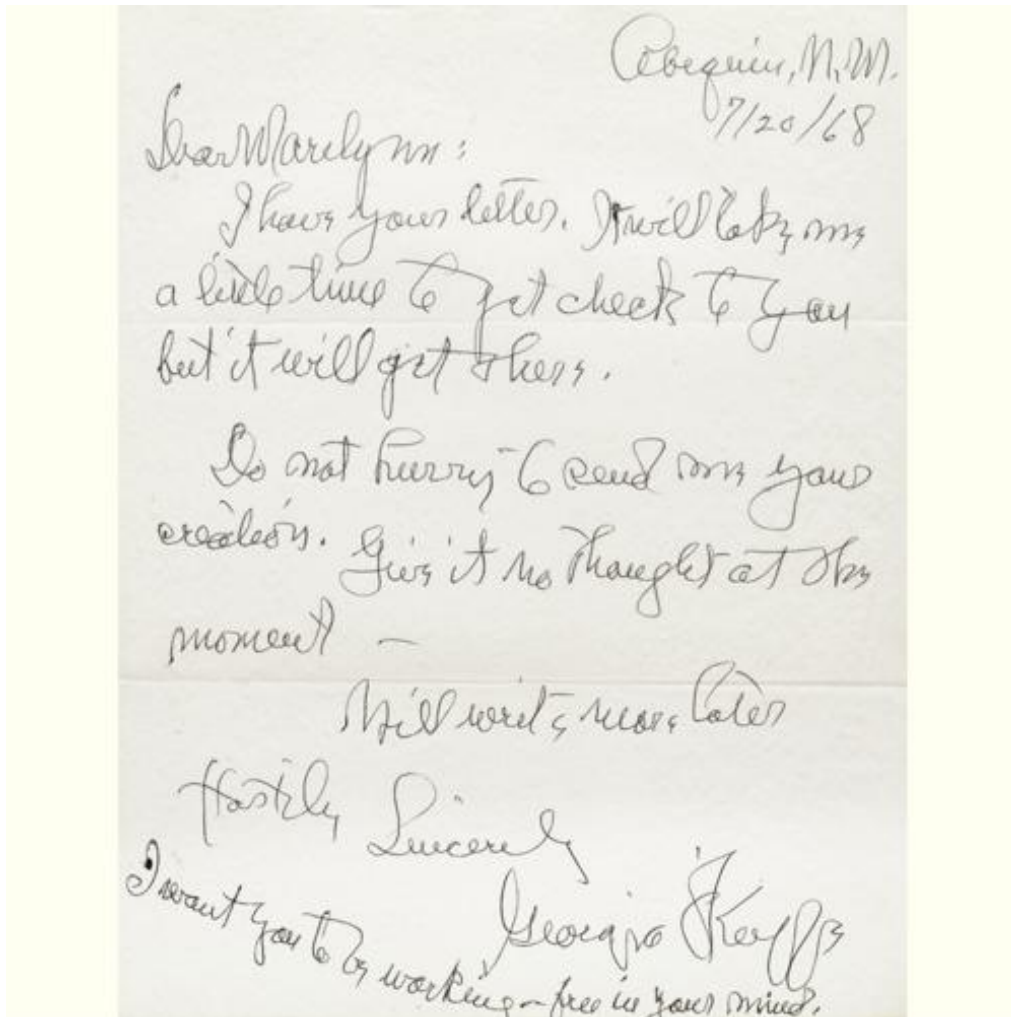 Abiquiu, N.M.
7/20/68
Dear Marilynn:
I have your letter. It will take me
a little time to get check to you
but it will get there.
Do not hurry to send me your
creation. Give it no thought at the
moment —
Will write more later
Hastily Sincerely
Georgia O'Keeffe
I want you to be working – free in your mind.